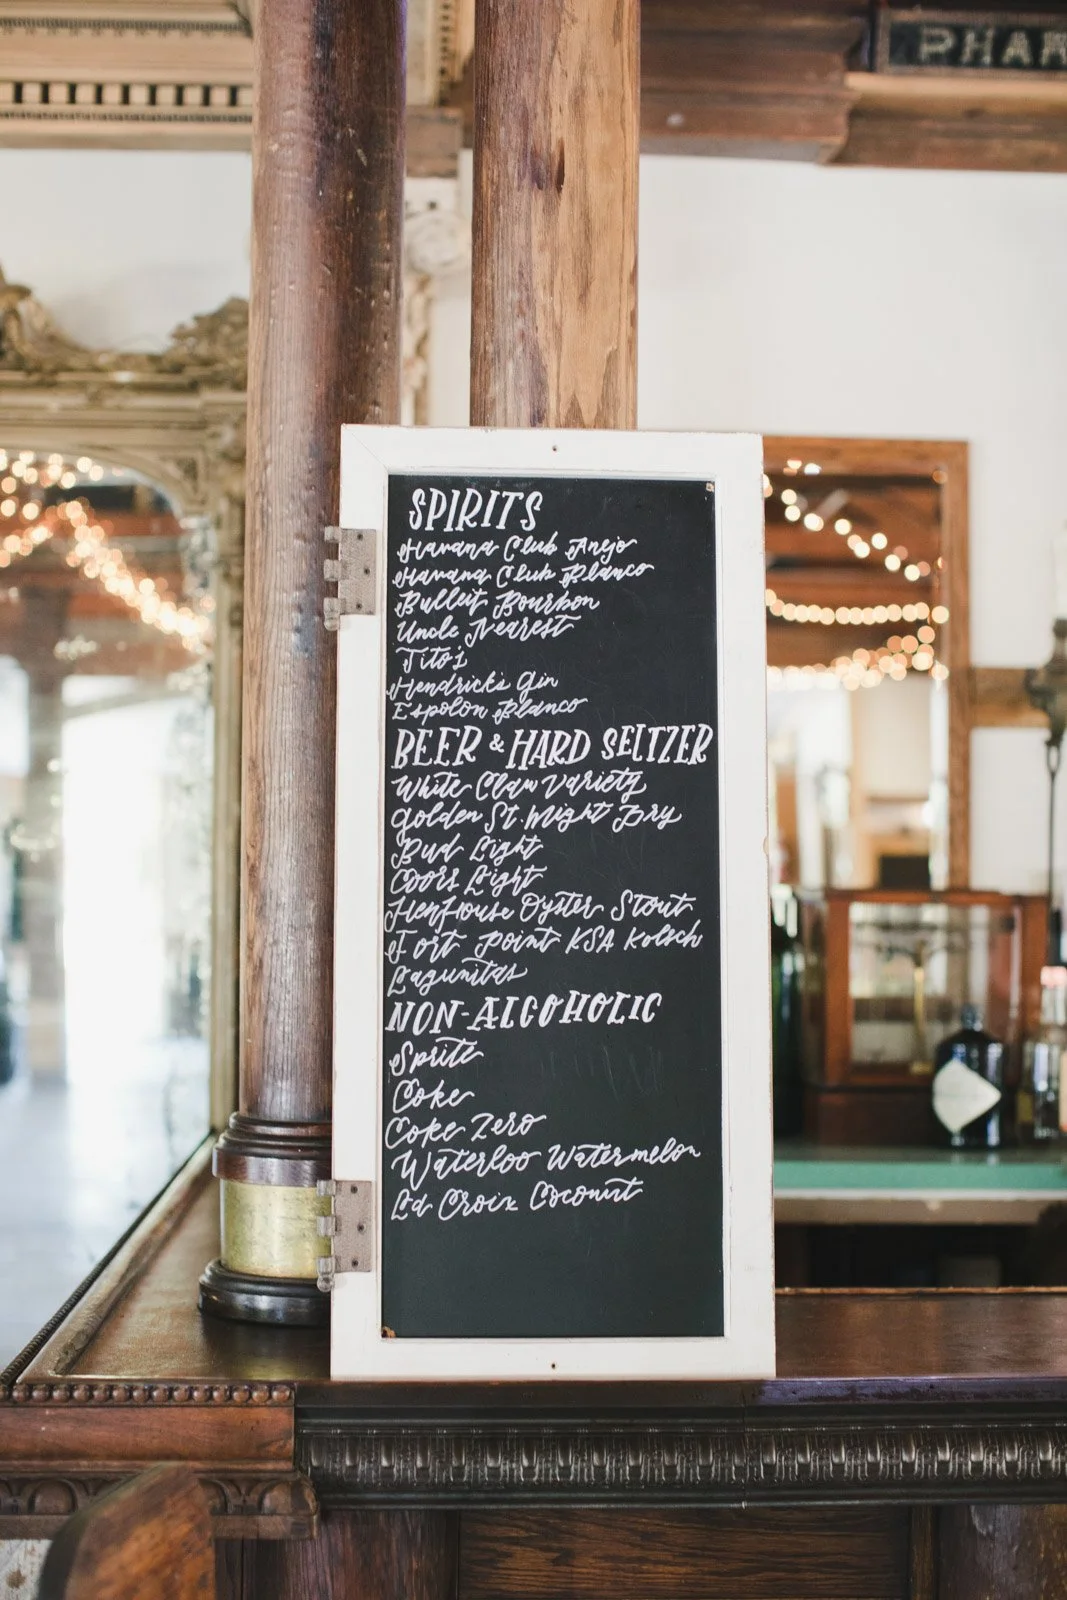 PHAR
SPIRITS
Havana Club Anejo
Havana Club Blanco
Bulleit Bourbon
Uncle Nearest
Tito's
Hendrick's Gin
Espolon Blanco
BEER & HARD SELTZER
White Claw Variety
Golden St. Might Dry
Bud Light
Coors Light
HenHouse Oyster Stout
Fort Point KSA Kolsch
Lagunitas
NON-ALCOHOLIC
Sprite
Coke
Coke Zero
Waterloo Watermelon
La Croix Coconut